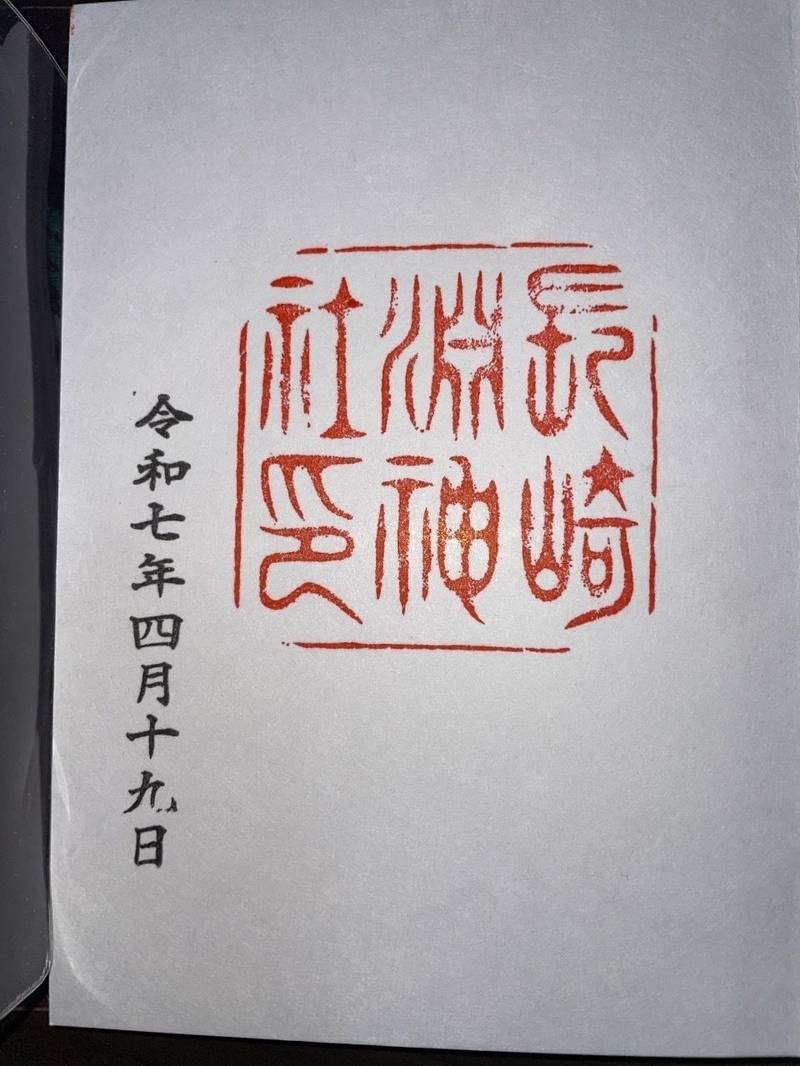 長崎
淵神
社印
令和七年四月十九日